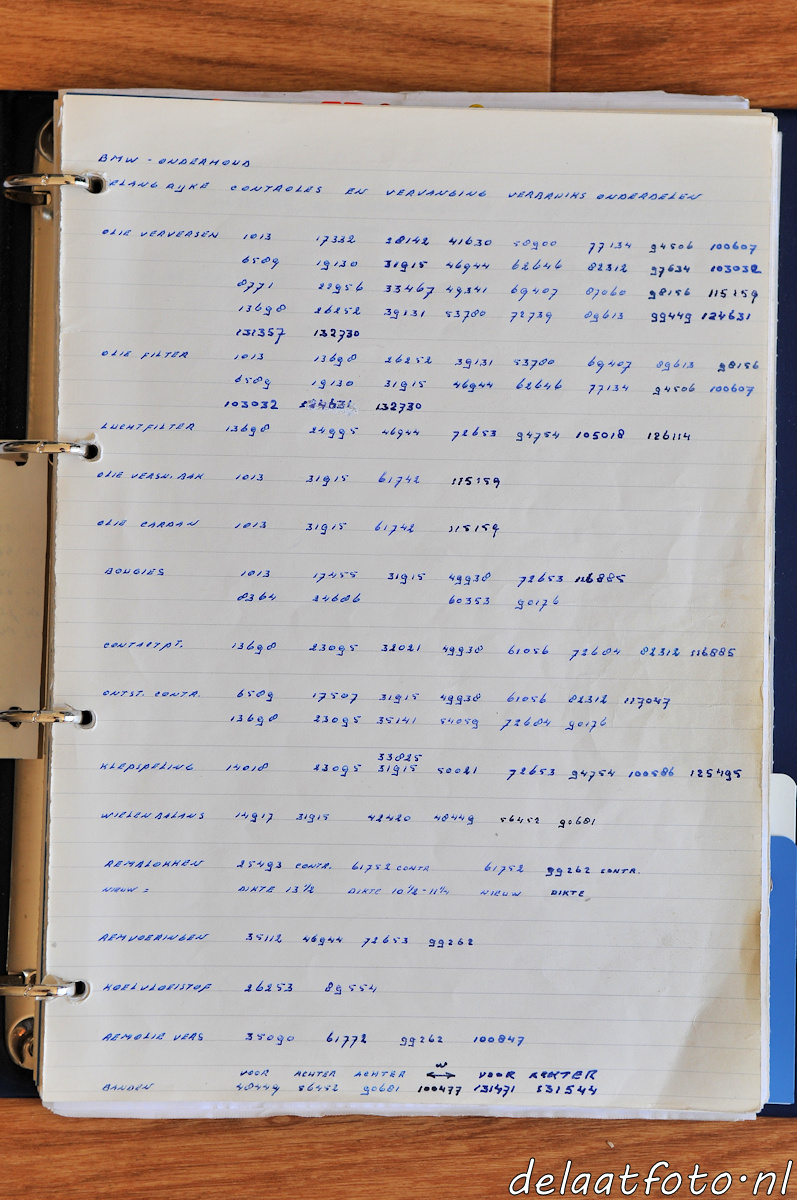 BMW - ONDERHOUD
BELANGRIJKE CONTROLES EN VERVANGING VERBRUIKS ONDERDELEN
OLIE VERVERSEN 1013 17332 28142 41630 58900 77134 94506 100607
6589 19130 31915 46944 62646 82312 97634 103032
8771 22956 33467 49341 69407 87060 98156 115159
13698 26252 39131 53780 72739 89613 99449 124631
131357 132730
OLIE FILTER 1013 13698 26252 39131 53780 69407 89613 98156
6589 19130 31915 46944 62646 77134 94506 100607
103032 124631 132730
LUCHTFILTER 13698 24995 46944 72653 94754 105018 126114
OLIE VERSN. BAK 1013 31915 61742 115159
OLIE CARDAN 1013 31915 61742 115159
BOUGIES 1013 17455 31915 49938 72653 116885
8364 24686 60353 90176
CONTACTPT. 13698 23095 32021 49938 61056 72684 82312 116885
ONTST. CONTR. 6589 17507 31915 49938 61056 82312 117047
13698 23095 35141 54059 72684 90176
33825
KLEPSPELING 14018 23095 31915 50021 72653 94754 100586 125495
WIELEN BALANS 14917 31915 42420 48449 56452 90681
REMBLOKKEN 25493 CONTR. 61752 CONTR 61752 99262 CONTR.
NIEUW = DIKTE 13 1/2 DIKTE 10 1/2 - 11 1/4 NIEUW DIKTE
REMVOERINGEN 35112 46944 72653 99262
KOELVLOEISTOF 26253 89554
REMOLIE VERS 35090 61772 99262 100847
VOOR ACHTER ACHTER W ↔ VOOR ACHTER
BANDEN 48449 56452 90681 100477 131471 131544
delaatfoto.nl